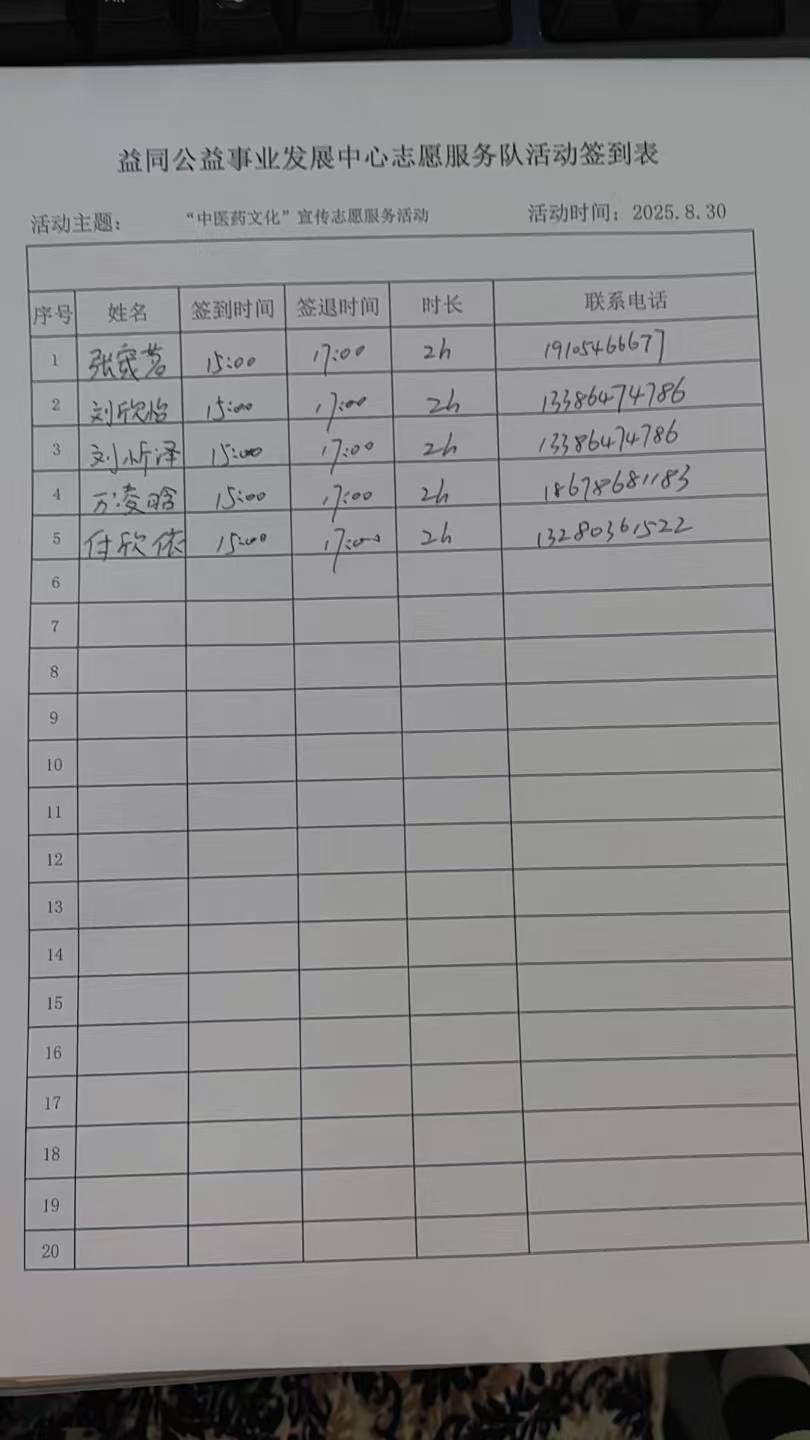 益同公益事业发展中心志愿服务队活动签到表
活动主题： “中医药文化”宣传志愿服务活动 活动时间：2025.8.30
序号 姓名 签到时间 签退时间 时长 联系电话
1 张宸茗 15:00 17:00 2h 19105466677
2 刘欣怡 15:00 17:00 2h 13386474786
3 刘忻泽 15:00 17:00 2h 13386474786
4 万凌晗 15:00 17:00 2h 18678681183
5 付欣依 15:00 17:00 2h 13280361522
6
7
8
9
10
11
12
13
14
15
16
17
18
19
20